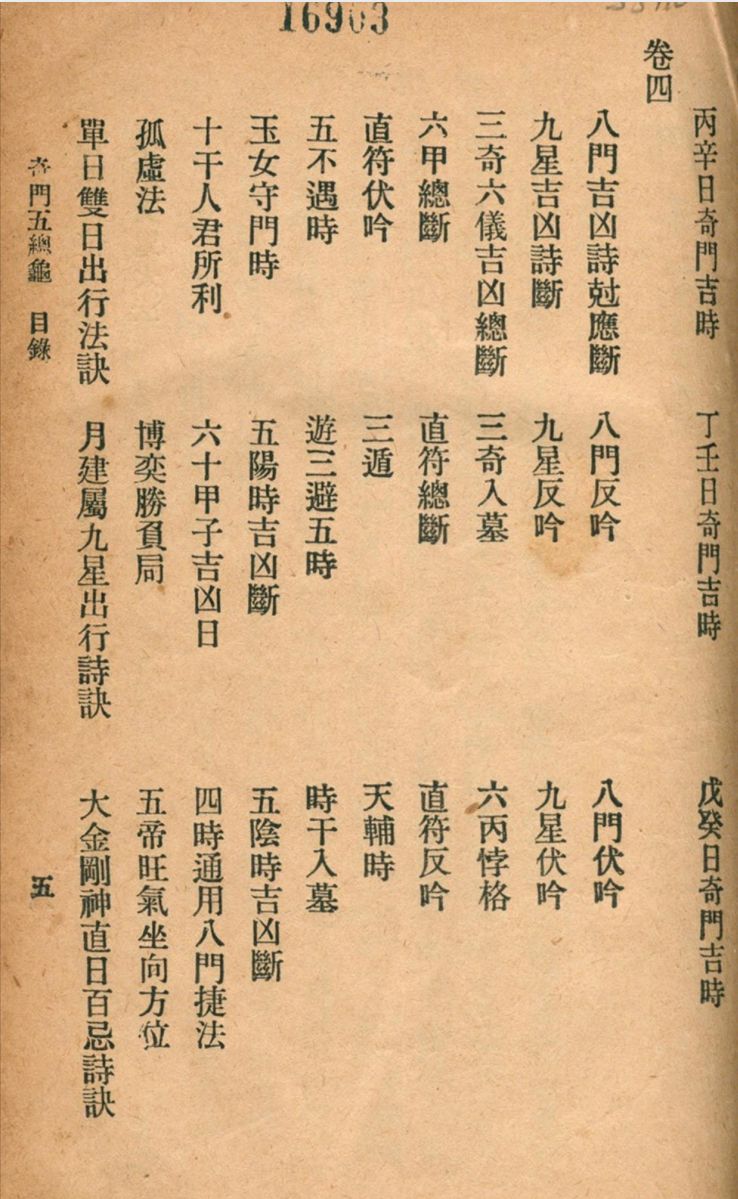 16903
丙辛日奇門吉時　丁壬日奇門吉時　戊癸日奇門吉時
卷四
八門吉凶詩尅應斷　八門反吟　八門伏吟
九星吉凶詩斷　九星反吟　九星伏吟
三奇六儀吉凶總斷　三奇入墓　六丙悖格
六甲總斷　直符總斷　直符反吟
直符伏吟　三遁　天輔時
五不遇時　遊三避五時　時干入墓
玉女守門時　五陽時吉凶斷　五陰時吉凶斷
十干人君所利　六十甲子吉凶日　四時通用八門捷法
孤虛法　博奕勝負局　五帝旺氣坐向方位
單日雙日出行法訣　月建屬九星出行詩訣　大金剛神直日百忌詩訣
奇門五總龜　目錄　五